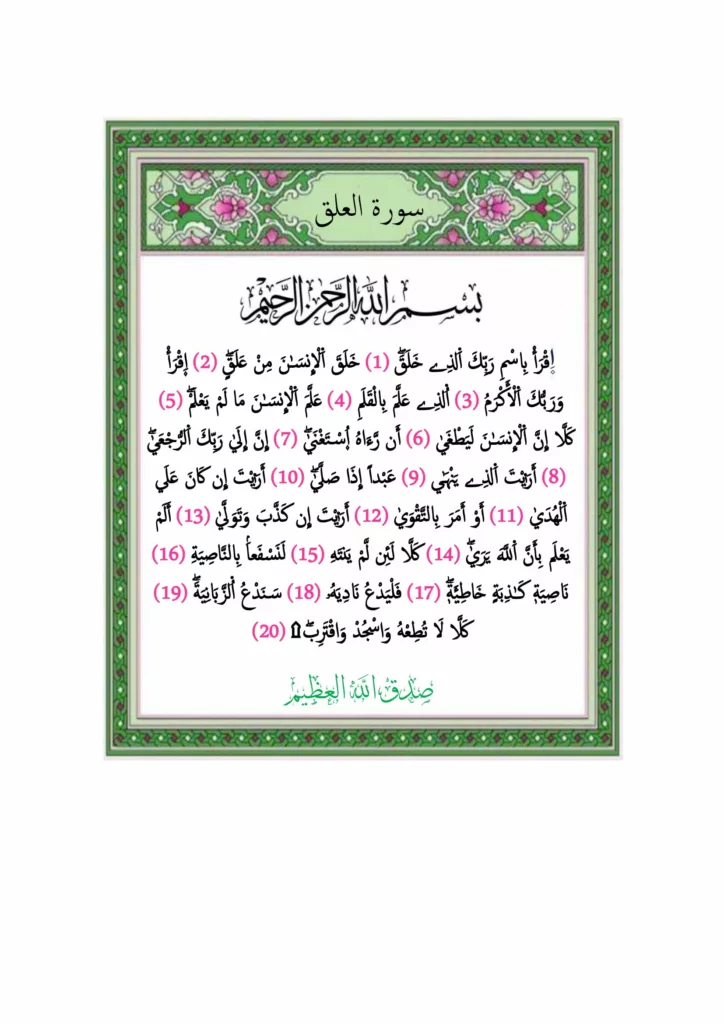 سورة العلق
بسم الله الرحمن الرحيم
اِ۪قْرَأْ بِاسْمِ رَبِّكَ اَ۬لذِے خَلَقَۖ (1) خَلَقَ اَ۬لْإِنسَٰنَ مِنْ عَلَقٍۖ (2) اِ۪قْرَأْ
وَرَبُّكَ اَ۬لْأَكْرَمُ (3) اُ۬لذِے عَلَّمَ بِالْقَلَمِ (4) عَلَّمَ اَ۬لْإِنسَٰنَ مَا لَمْ يَعْلَمْۖ (5)
كَلَّا إِنَّ اَ۬لْإِنسَٰنَ لَيَطْغَىٰ (6) أَن رَّءَاهُ اُ۪سْتَغْنَىٰٓۖ (7) إِنَّ إِلَىٰ رَبِّكَ اَ۬لرُّجْعَىٰٓۖ
(8) أَرَٰٓيْتَ اَ۬لذِے يَنْهَىٰ (9) عَبْداً إِذَا صَلَّىٰٓۖ (10) أَرَٰٓيْتَ إِن كَانَ عَلَى
اَ۬لْهُدَىٰٓ (11) أَوْ أَمَرَ بِالتَّقْوَىٰٓ (12) أَرَٰٓيْتَ إِن كَذَّبَ وَتَوَلَّىٰٓ (13) أَلَمْ
يَعْلَم بِأَنَّ اَ۬للَّهَ يَرَىٰۖ (14) كَلَّا لَئِن لَّمْ يَنتَهِ (15) لَنَسْفَعاَۢ بِالنَّاصِيَةِ (16)
نَاصِيَةٖ كَٰذِبَةٍ خَاطِئَةٖۖ (17) فَلْيَدْعُ نَادِيَهُۥ (18) سَنَدْعُ اُ۬لزَّبَانِيَةَۖ (19)
كَلَّا لَا تُطِعْهُ وَاسْجُدْ وَاقْتَرِبۖ ۩ (20)
صدق الله العظيم